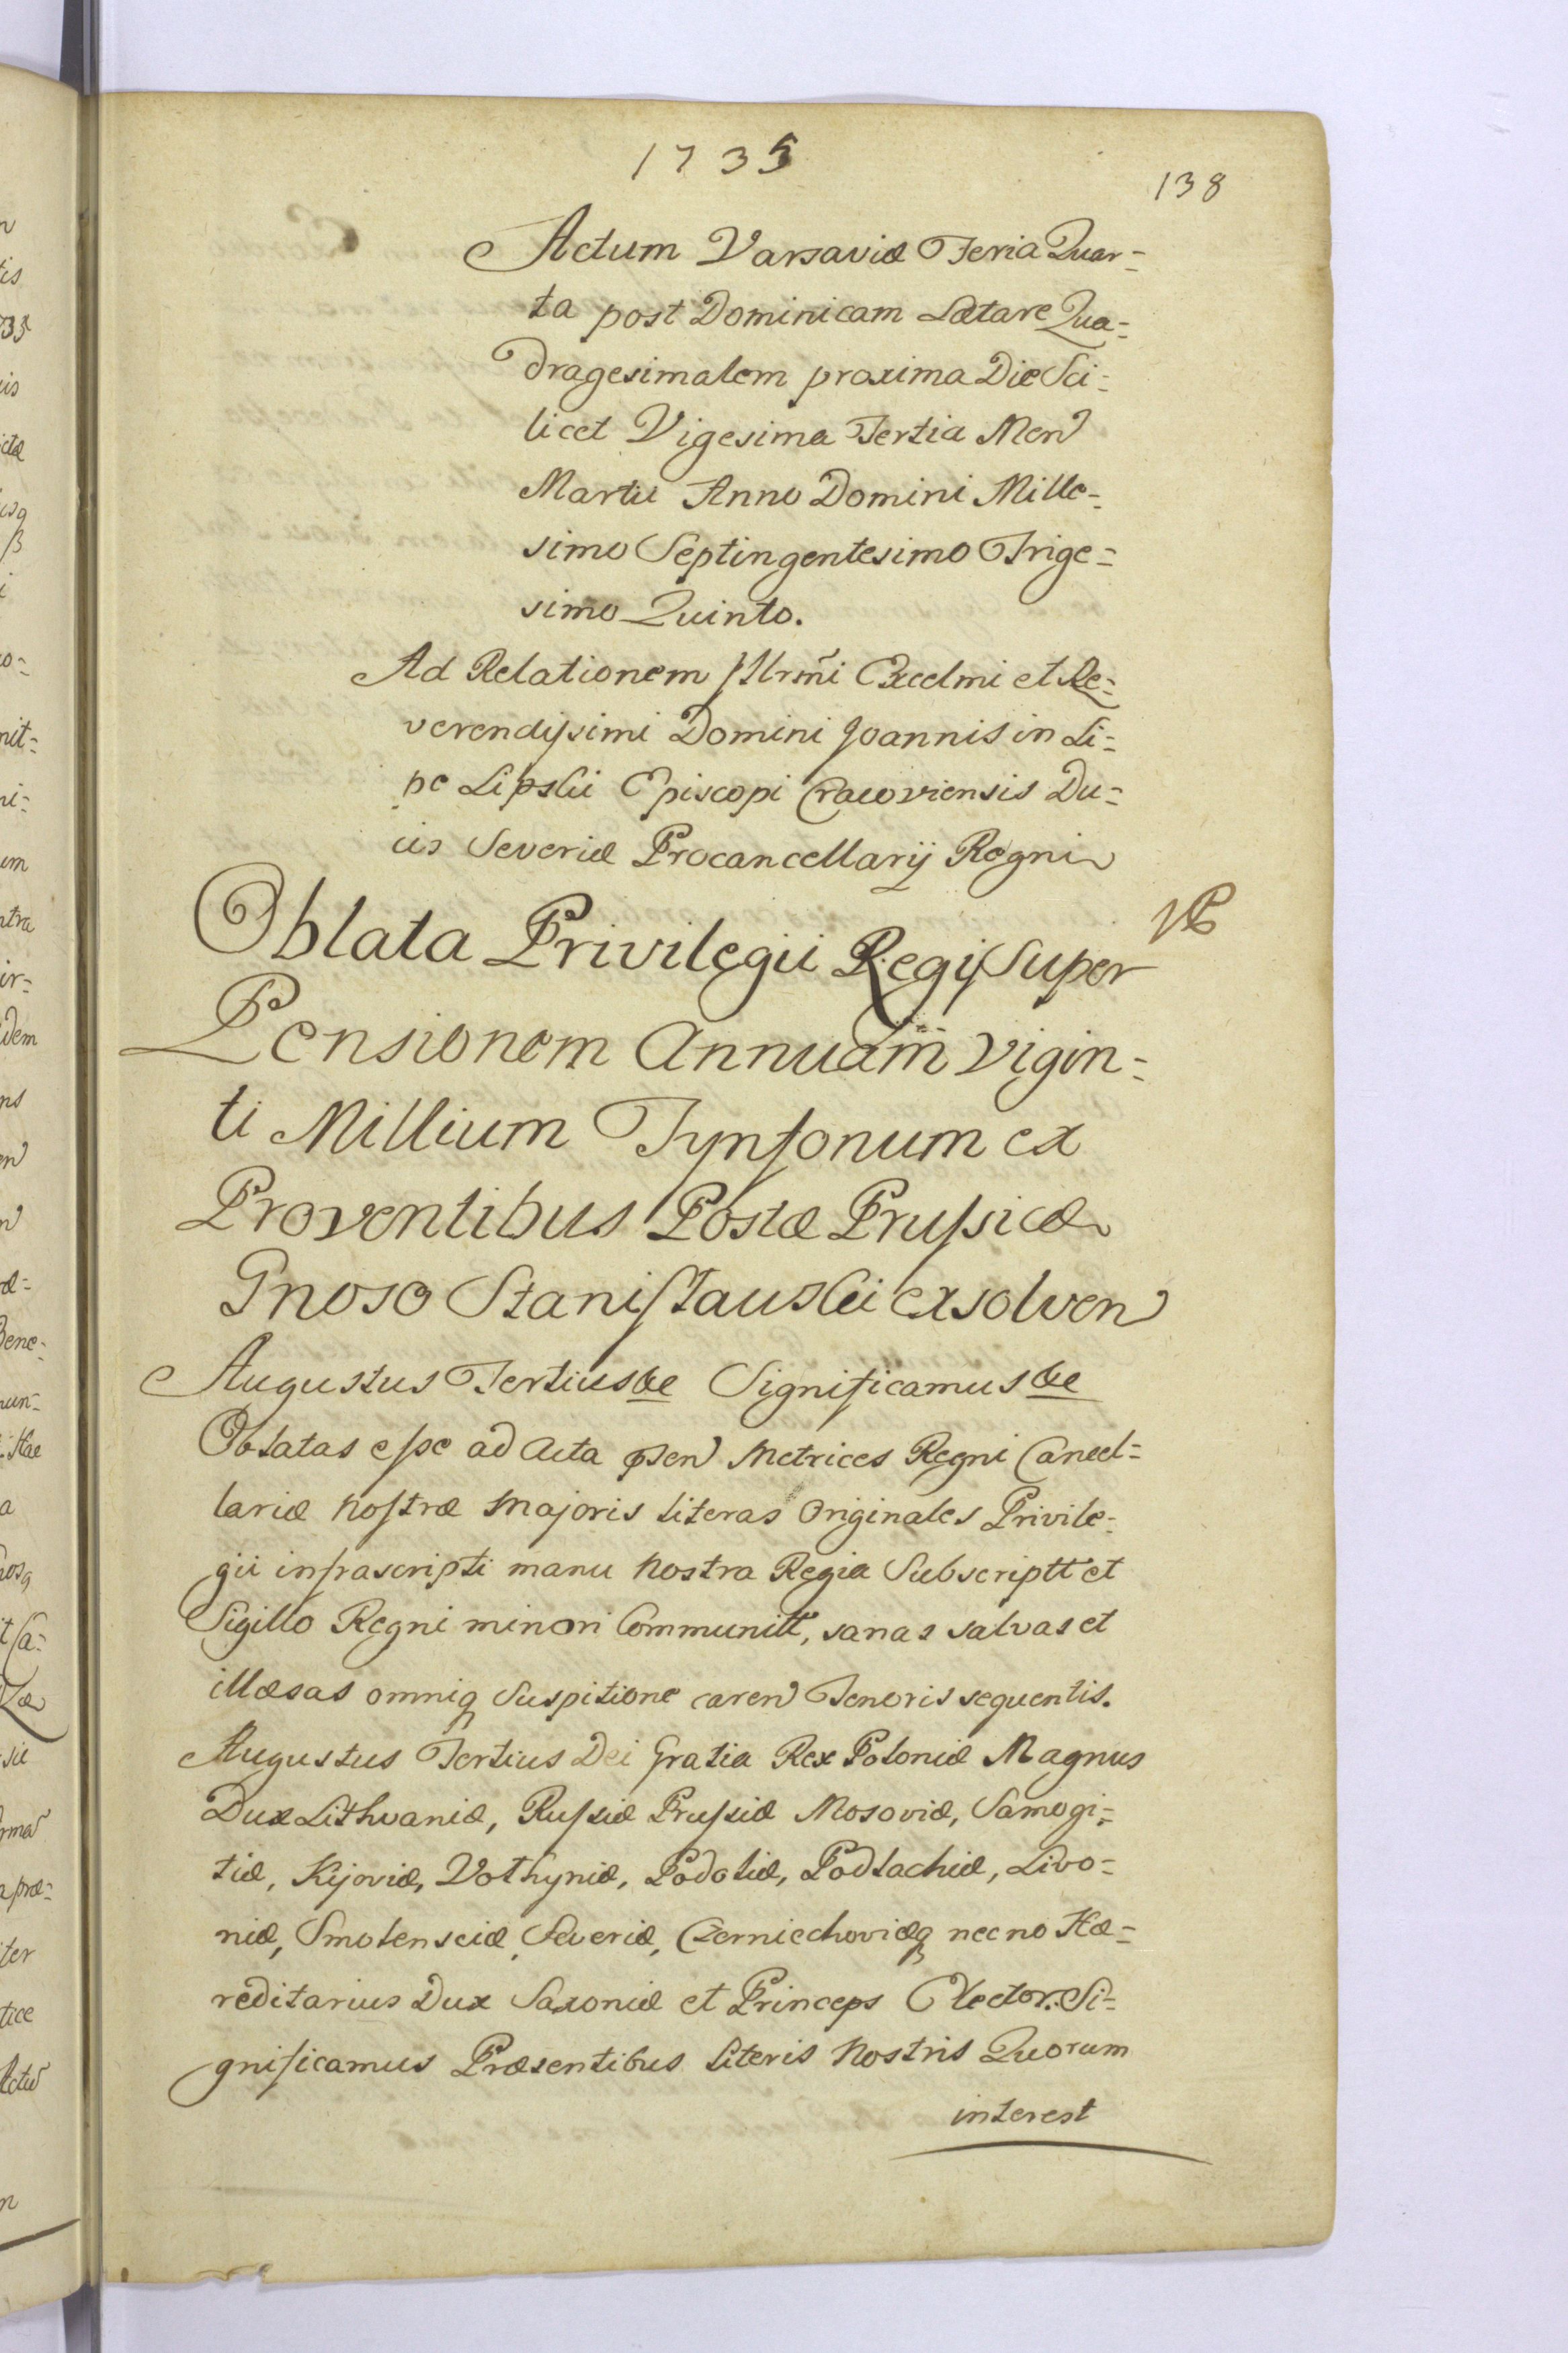 1735
138
Actum Varsaviæ Feria Quar=
ta post Dominicam Lætare Qua=
dragesimalem proxima Die Sci=
licet Vigesima Tertia Men
Martii Anno Domini Mille=
simo Septingentesimo Trige=
simo Quinto.
Ad Relationem Illrmi Excelmi et Re=
verendissimi Domini Joannis in Li=
pe Lipskii Episcopi Cracoviensis Du=
cis Severiæ Procancellarij Regni
Oblata Privilegii Regij Super
Pensionem Annuam Vigin=
ti Millium Tynfonum ex
Proventibus Postæ Prussicæ
Gnoso Stanisławski exsolven
Augustus Tertius &c Significamus &c
Oblatas esse ad Acta psen Metrices Regni Cancel=
lariæ Nostræ Majoris literas Originales Privile=
gii infrascripti manu Nostra Regia Subscriptt et
Sigillo Regni minori Communitt, sanas salvas et
illæsas omniq Suspitione caren Tenoris sequentis.
Augustus Tertius Dei Gratia Rex Poloniæ Magnus
Dux Lithvaniæ, Russiæ Prussiæ Mosoviæ, Samogi=
tiæ, Kijoviæ, Volhyniæ, Podoliæ, Podlachiæ, Livo=
niæ, Smolensciæ, Severiæ, Czerniechoviæq necno Hæ=
reditarius Dux Saxoniæ et Princeps Elector. Si=
gnificamus Præsentibus Literis Nostris Quorum
interest